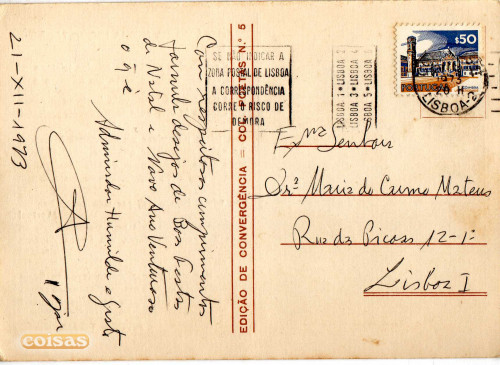 21-XII-1973
Com respeitosos cumprimentos
formulo desejos de Boas Festas
de Natal e Novo Ano Venturoso
o q é
Admirador Humilde e Grato
EDIÇÃO DE CONVERGÊNCIA = COLL. POSTAIS N.º 5
SE NÃO INDICAR A
ZONA POSTAL DE LISBOA
A CORRESPONDÊNCIA
CORRE O RISCO DE
DEMORA
LISBOA 1 • LISBOA 2
LISBOA 3 • LISBOA 4
LISBOA 5 • LISBOA
$50
1973
20 H
LISBOA-2
Exmª Senhora
Drª Maria do Carmo Mateus
Rua das Picoas 12-1º
Lisboa I
coisas